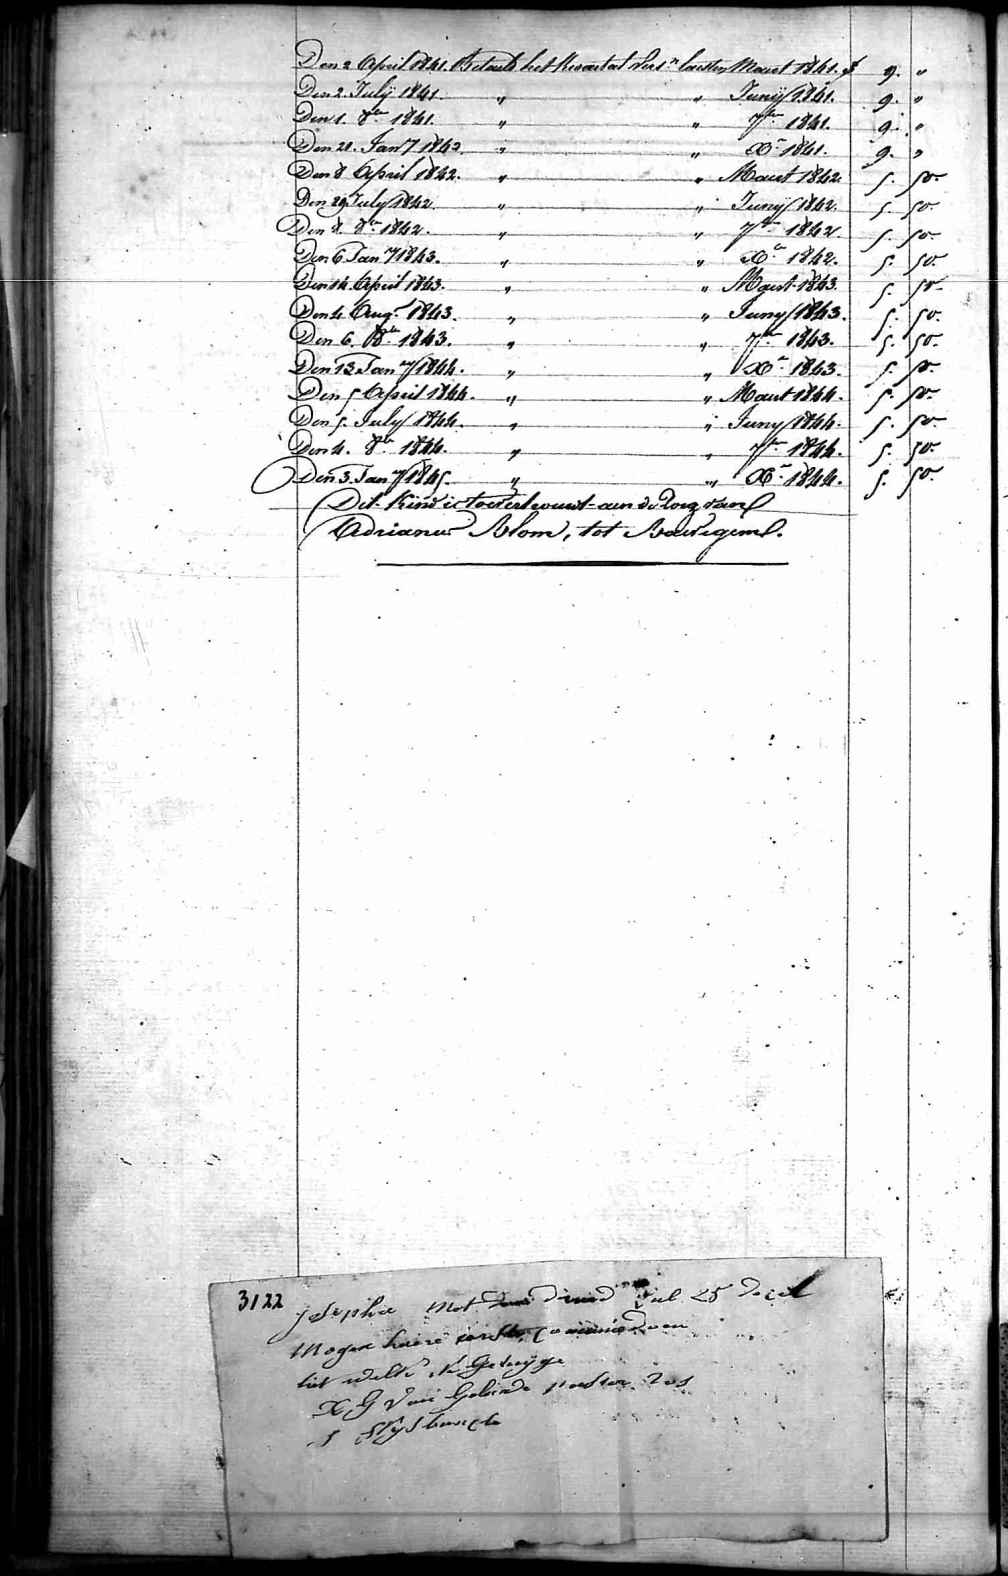 Den 2 April 1841. Betaald het Kwartaal vers.n laasten Maart 1841. f 9. "
Den 2 July 1841. " " Junij 1841. 9. "
Den 1. 8ber 1841. " " 7ber 1841. 9. "
Den 21. Jany 1842 " " Xr 1841. 9. "
Den 8 April 1842. " " Maart 1842 5. 50.
Den 29 July 1842. " " Juny 1842. 5. 50.
Den 8. 8br 1842. " " 7ber 1842. 5. 50.
Den 6 Jany 1843. " " Xbr 1842. 5. 50.
Den 14 April 1843. " " Maart 1843. 5. 50.
Den 4. Aug. 1843. " " Juny 1843. 5. 50.
Den 6. 8ber 1843. " " 7br 1843. 5. 50.
Den 12 Jany 1844. " " Xr 1843. 5. 50.
Den 5 April 1844. " " Maart 1844. 5. 50.
Den 5. July 1844. " " Juny 1844. 5. 50.
Den 4. 8br 1844. " " 7ber 1844. 5. 50.
Den 3. Jany 1845. " " Xr 1844. 5. 50.
Dit Kind is toevertrouwt aen de zorg van
Adrianus Blom, tot Bavegem.
3122
Josephu Met zal 25 Decel
Mogen haere eerste Communie doen
het welk ik Getuyge
X G Van pastor tot